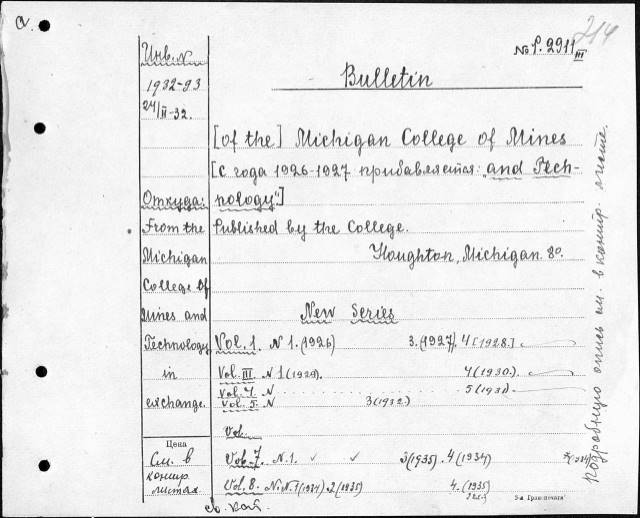 214
а.
№ P. 2911 III
Инв. №
1932-93
24/II-32.
Bulletin
[of the] Michigan College of Mines
[с года 1926-1927 прибавляется: „and Tech-
nology"]
Откуда:
From the
Michigan
College of
Mines and
Technology
in
exchange.
Published by the College.
Houghton, Michigan. 8°.
New Series
Vol. 1. N 1. (1926) 3. (1927). 4 [1928.]
Vol. III N 1 (1929). 4 (1930.)
Vol. 4. N 5 (1931)
Vol. 5. N 3 (1932.)
Vol.
Цена
См. в
контр.
листах
Vol. 7. N. 1. 3 (1935). 4. (1934)
Vol. 8. N. N. 1 (1934). 2 (1935) 4. (1935)
Подробную опись см. в контр. листе.
5-я Гран-печата"